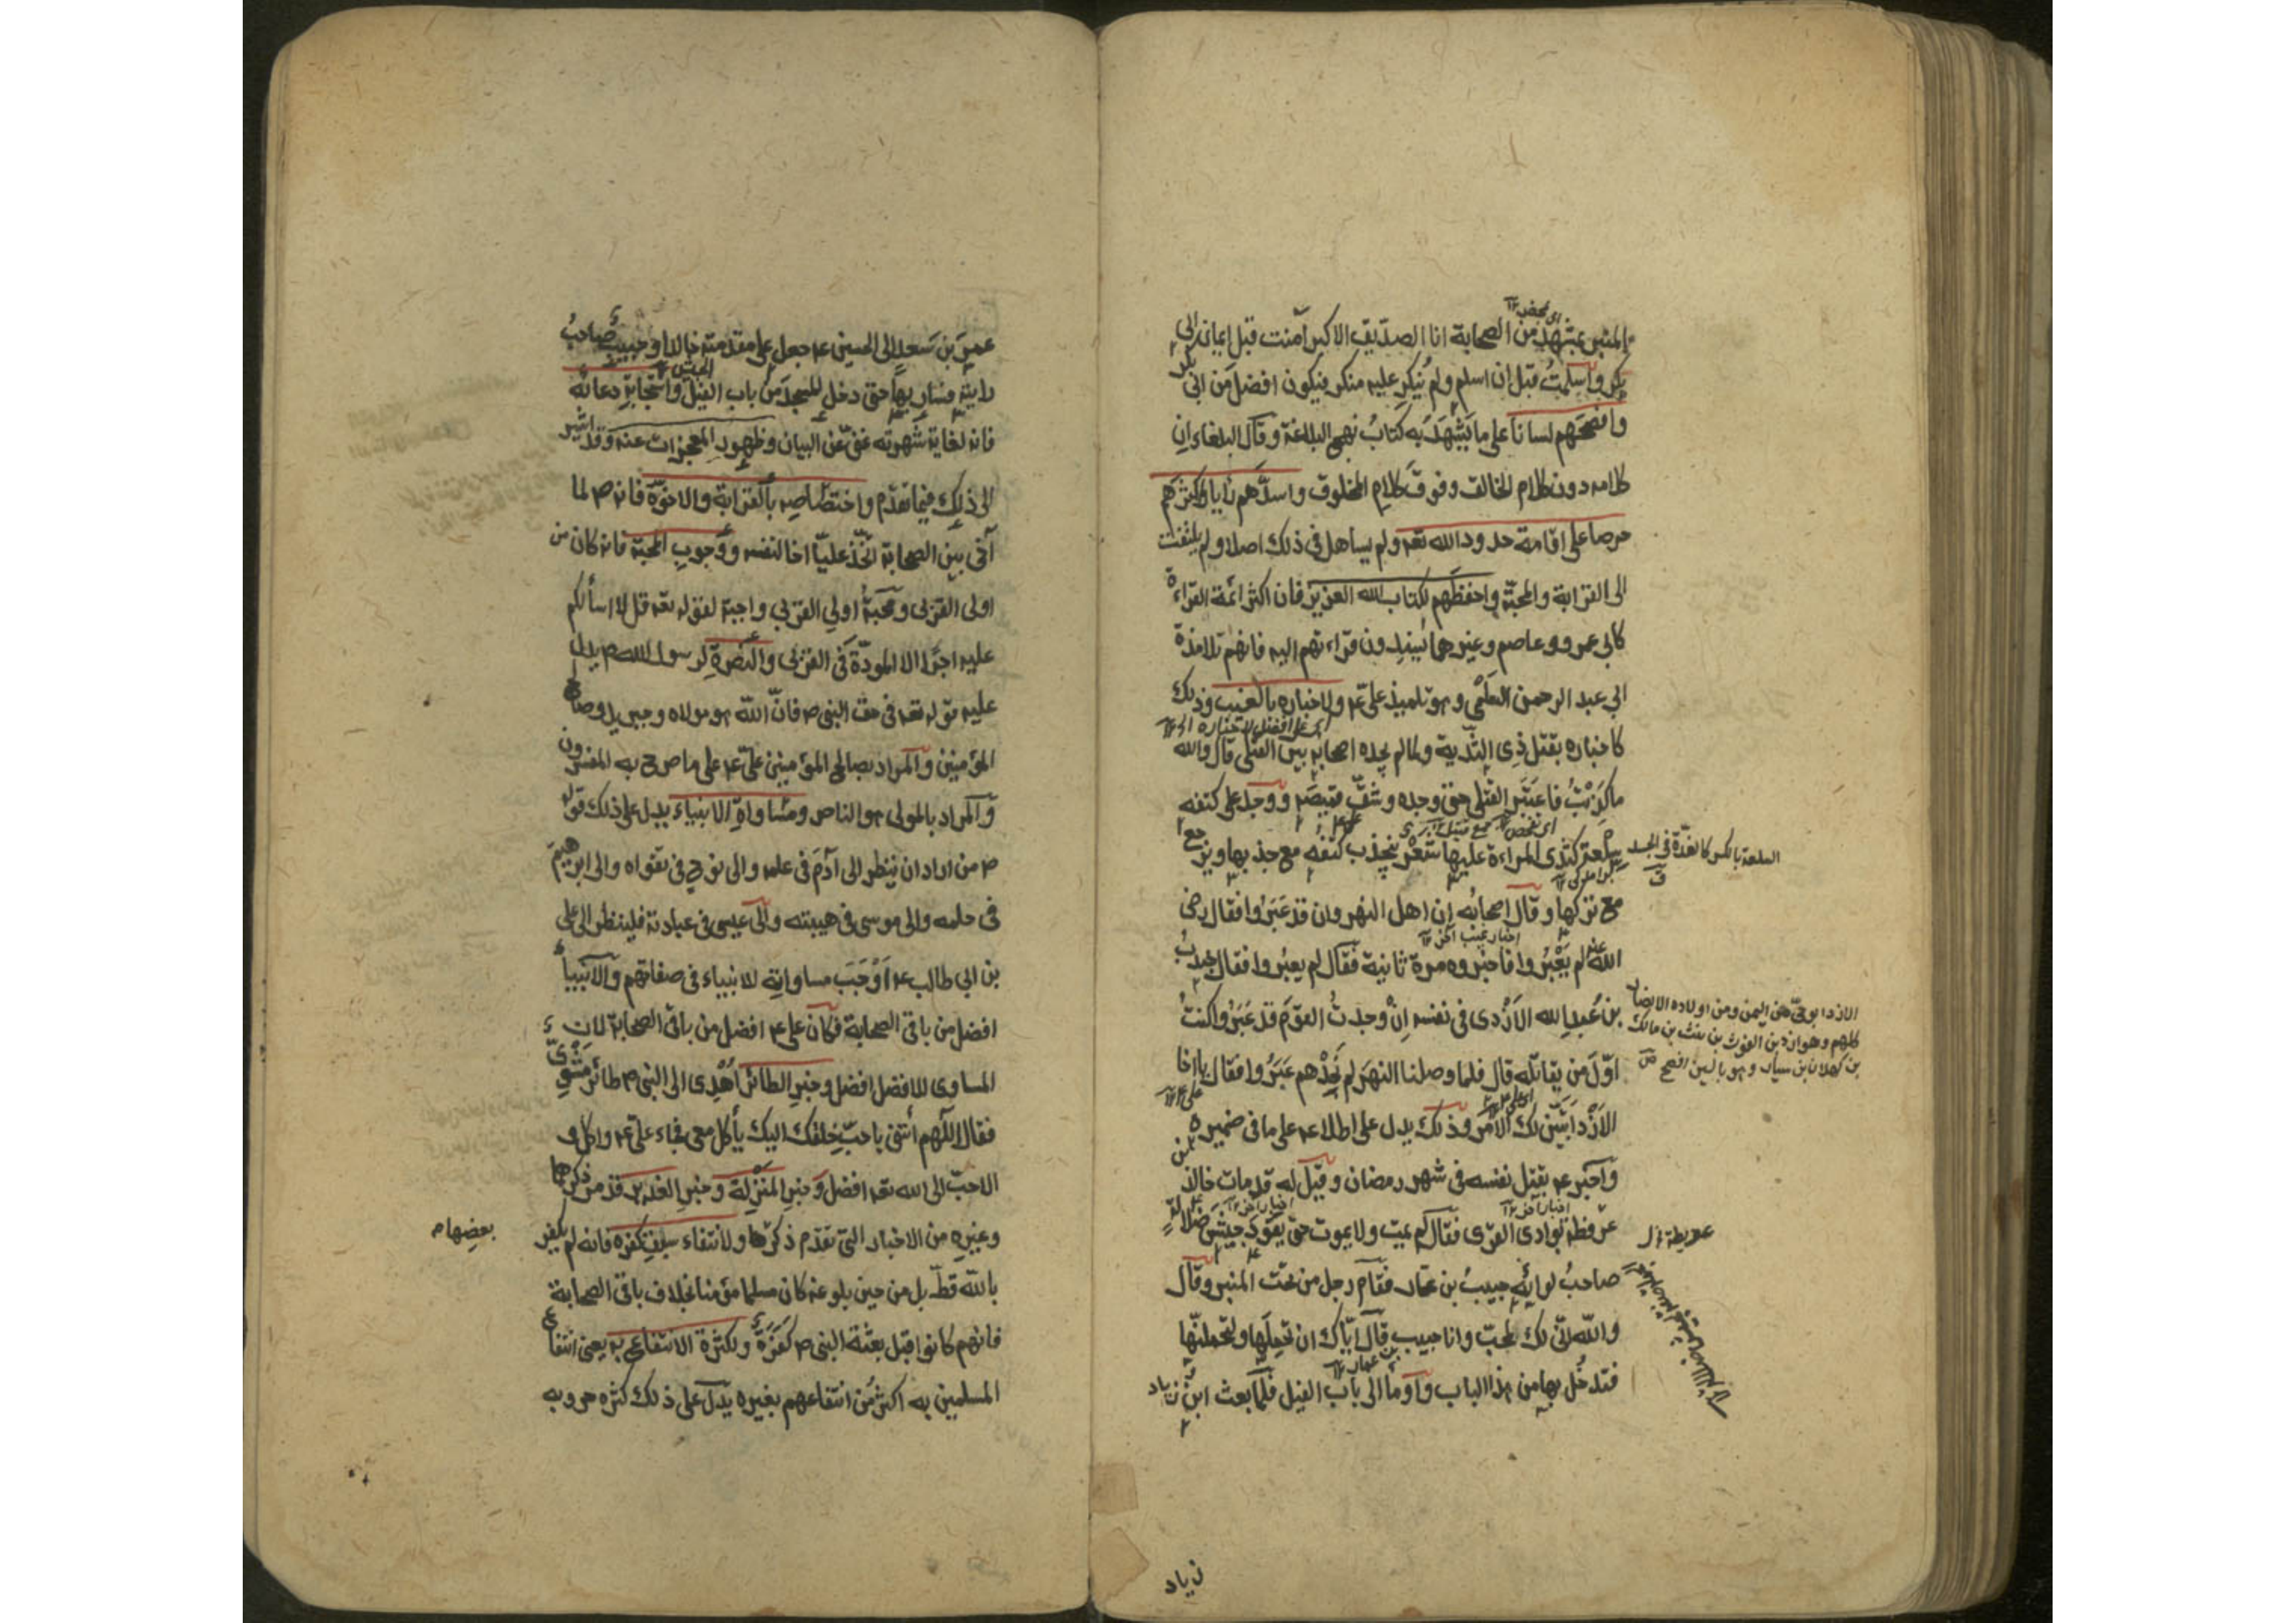 المنبر بمشهد من الصحابة انا الصدّيق الاكبر آمنت قبل ايمان ابى
بكر واسلمتُ قبل ان اسلم ولم يُنكِر عليه منكر فيكون افضل من ابى بكر
وافصحَهم لساناً على ما يَشْهَدُ به كتابُ نهج البلاغة وقال البلغاء ان
كلامه دون كلام الخالق وفوقَ كلامِ المخلوق واسدَّهم رأيا واكثرَهم
حرصا على اقامة حدود الله تعه ولم يساهل فى ذلك اصلا ولم يلتفت
الى القرابة والمحبّة واحفظَهم لكتاب الله العزيز فان اكثر ائمة القراءة
كابى عمرو وعاصم وغيرهما يُسندِون قراءتهم اليه فانهم تلامذة
ابي عبد الرحمن السلمى وهو تلميذ علىّ ع ولاخباره بالغيب وذلك
كاخباره بقتل ذِى الثُدية ولمّا لم يجده اصحابه بين القتلى قال والله
ما كَذِبْتُ فاعتَبَر القتلى حتى وجده وشقّ قميصَه ووجد على كتفه
سِلْعة كثدى المراءة عليها شعر ينجذب كتفه مع جذبها ويرجع
مع تركها وقال اصحابُه إن اهل النهروان قد عَبَرُوا فقال رضى
الله عنه لم يَعْبُروا فاخبروه مرة ثانية فقال لم يعبُروا فقال جندبُ
بن عَبدِ الله الاَزْدى فى نفسه اِنْ وجدتُ القومَ قد عَبَرُوا كنتُ
اوّلَ من يقاتله قال فلما وصلنا النهرَ لم نَجِدْهم عَبَرُوا فقال يا اخا
الاَزْد اَتَبَيّنَ لك الامرُ وذلك يدل على اطلاعه على ما فى ضميره
واَخبر ع بقتل نفسه فى شهر رمضان وقيل له قد مات خالد بن
عرفطة بوادى القرى فقال لم يمت ولا يموت حتى يقود جيشَ ضلالةٍ
صاحبُ لوائِه حبيبُ بن عمار فقام رجل من تحت المنبر وقال
والله انّى لك لمحبّ وانا حبيب قال ايّاك ان تحمِلَها ولتحملنّها
فتدخُل بها من هذا الباب واَوما الى باب الفيل فلمّا بعث ابن زياد
زياد
السلعة بالكسر كالغدّة فى الجسد
الازد ابو حىّ من اليمن ومن اولاده الانصار
كلهم وهو ازد بن الغوث بن نبت بن مالك
بن كهلان بن سبا وهو بالسين افصح
عمرَ بن سَعد الى الحسين ع جعل على مقدمته خالدا وحبيبٌ صاحبُ
رايته فسار بها حتى دخل المسجد من باب الفيل واستجابةِ دعائه
فانه لغاية شهرته غنىّ عن البيان وظهورِ المعجزات عنه وقد اشير
الى ذلك فيما تقدّم واختصاصِه بالقرابة والاخوّة فانه ص لما
آخى بين الصحابة اتّخذ عليّا اخا لنفسه ووجوبِ المحبّة فانه كان من
اولى القربى ومحبّةُ اولى القربى واجبة لقوله تعه قل لا اسألكم
عليه اجرًا الا المودّة فى القربى والنصرةِ لرسول الله ص يدل
عليه قوله تعه فى حق النبى ص فانّ الله هو مولاه وجبريل وصالح
المؤمنين والمراد بصالح المؤمنين علىّ ع على ما صرح به المفسرون
والمراد بالمولى هو الناصر ومساواةِ الانبياء يدل على ذلك قوله
ص من اراد ان ينظر الى آدمَ فى علمه والى نوح فى تقواه والى ابراهيمَ
فى حلمه والى موسى فى هيبته والى عيسى فى عبادته فلينظر الى على
بن ابى طالب ع اَوْجَبَ مساواته للانبياء فى صفاتهم والانبياءُ
افضل من باقى الصحابة فكان على ع افضل من باقى الصحابة لان
المساوى للافضل افضل وخبرِ الطائر اُهْدِى الى النبى ص طائر مَشْوِىّ
فقال اللهم أئتنى باحبّ خلقك اليك يأكل معى فجاء علىّ ع واكل و
الاحبّ الى الله تعه افضل وخبرِ المَنْزِلة وخبرِ الغدير قد مرّ ذكرها
وغيرِه من الاخبار التى تقدّم ذكرُها ولانتفاء سبق كفره فانه لم يكفر
بعضِها م
بالله قطّ بل من حين بلوغه كان مسلما مؤمنا بخلاف باقى الصحابة
فانهم كانوا قبل بعثة النبى ص كَفَرَةً ولكثرة الانتفاع به يعنى انتفاع
المسلمين به اكثر من انتفاعهم بغيره يدلّ على ذلك كثره حروبه